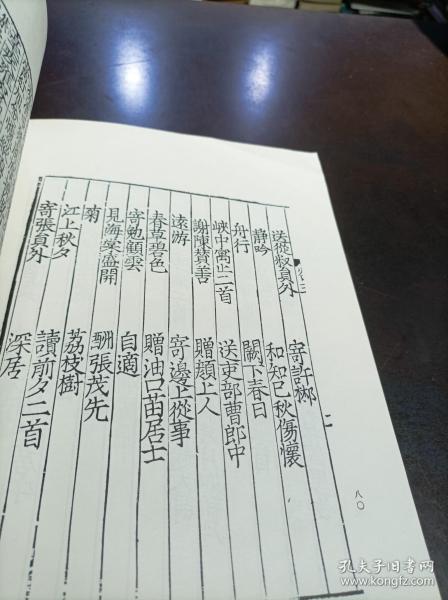 送從叔貟外　寄許
静吟　和知己秋傷懷
舟行　闕下春日
峽中寓止二首　送吏部曹郎中
謝陳贊善　贈上人
遠游　寄邊上從事
春草碧色　贈油口苗居士
寄勉顧雲　自適
見海棠盛開　酬張茂先
菊　荔枝樹
江上秋夕　讀前夕二首
寄張貟外　深居
二
八〇
孔夫子旧书网
book.kongfz.com